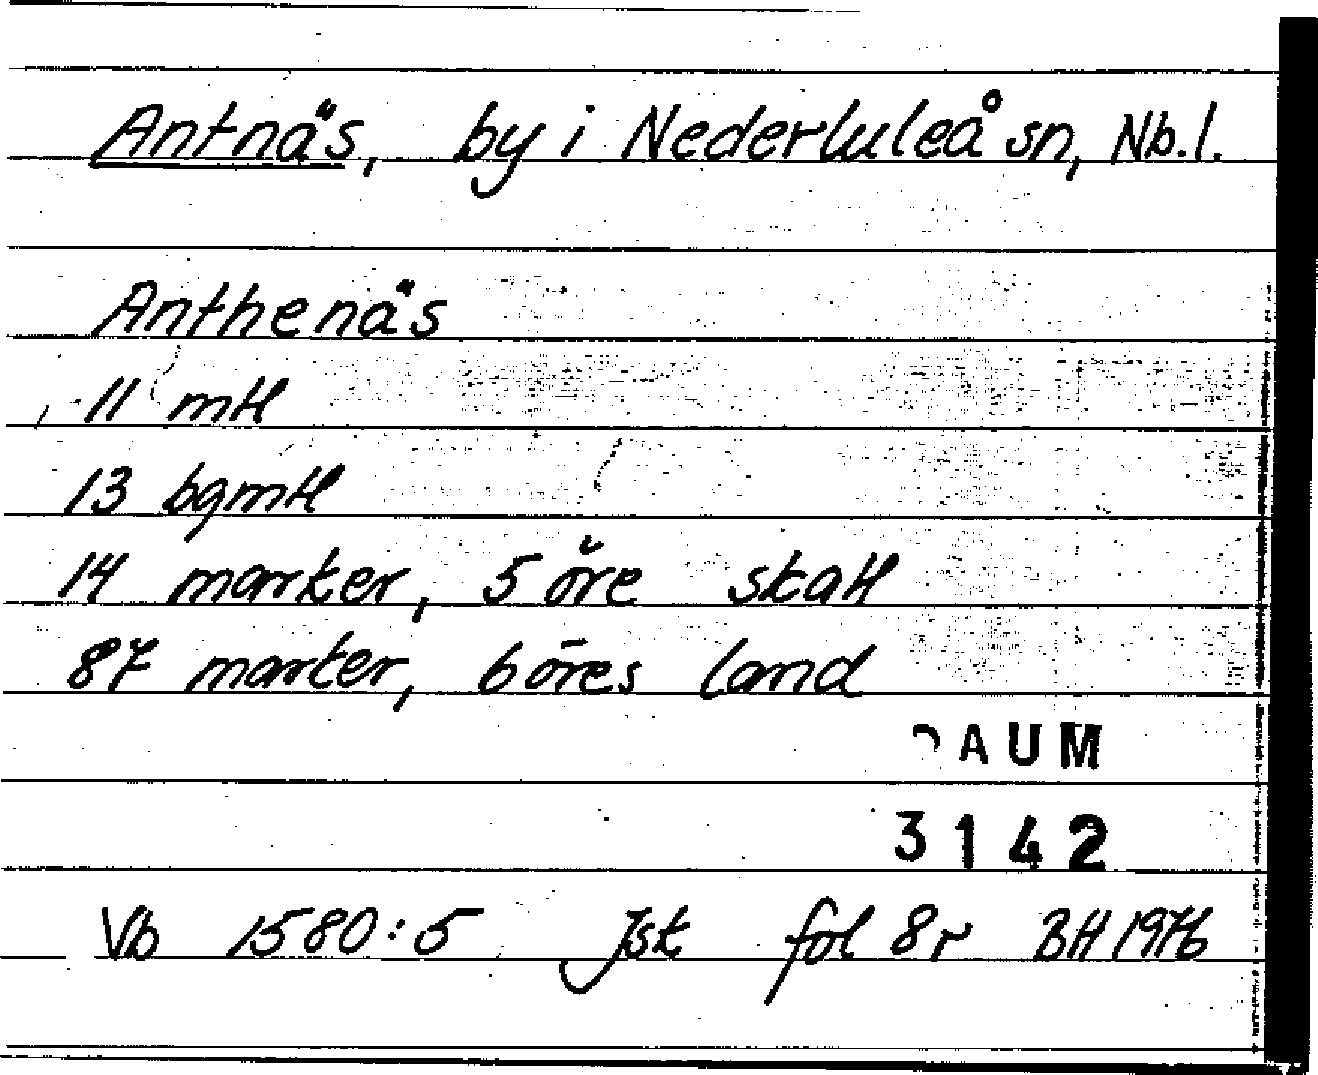 Antnäs, by i Nederluleå sn, Nb.l.
Anthenäs
11 mtl
13 bgmtl
14 marker, 5 öre skatt
87 marker, 6 öres land
DAUM
3142
Vb 1580:5 Jsk fol 8r BH 1976